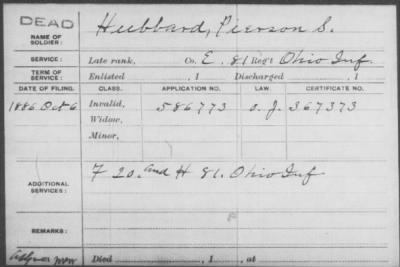 DEAD
NAME OF SOLDIER: Hubbard, Pierson S.
SERVICE: Late rank, Co. E. 81 Reg't Ohio Inf.
TERM OF SERVICE: Enlisted , 1 Discharged , 1
DATE OF FILING. CLASS. APPLICATION NO. LAW. CERTIFICATE NO.
1886 Oct 6 Invalid, 586773 367373
Widow,
Minor,
ADDITIONAL SERVICES: F 20. and H 81. Ohio Inf
REMARKS:
Died , 1 , at